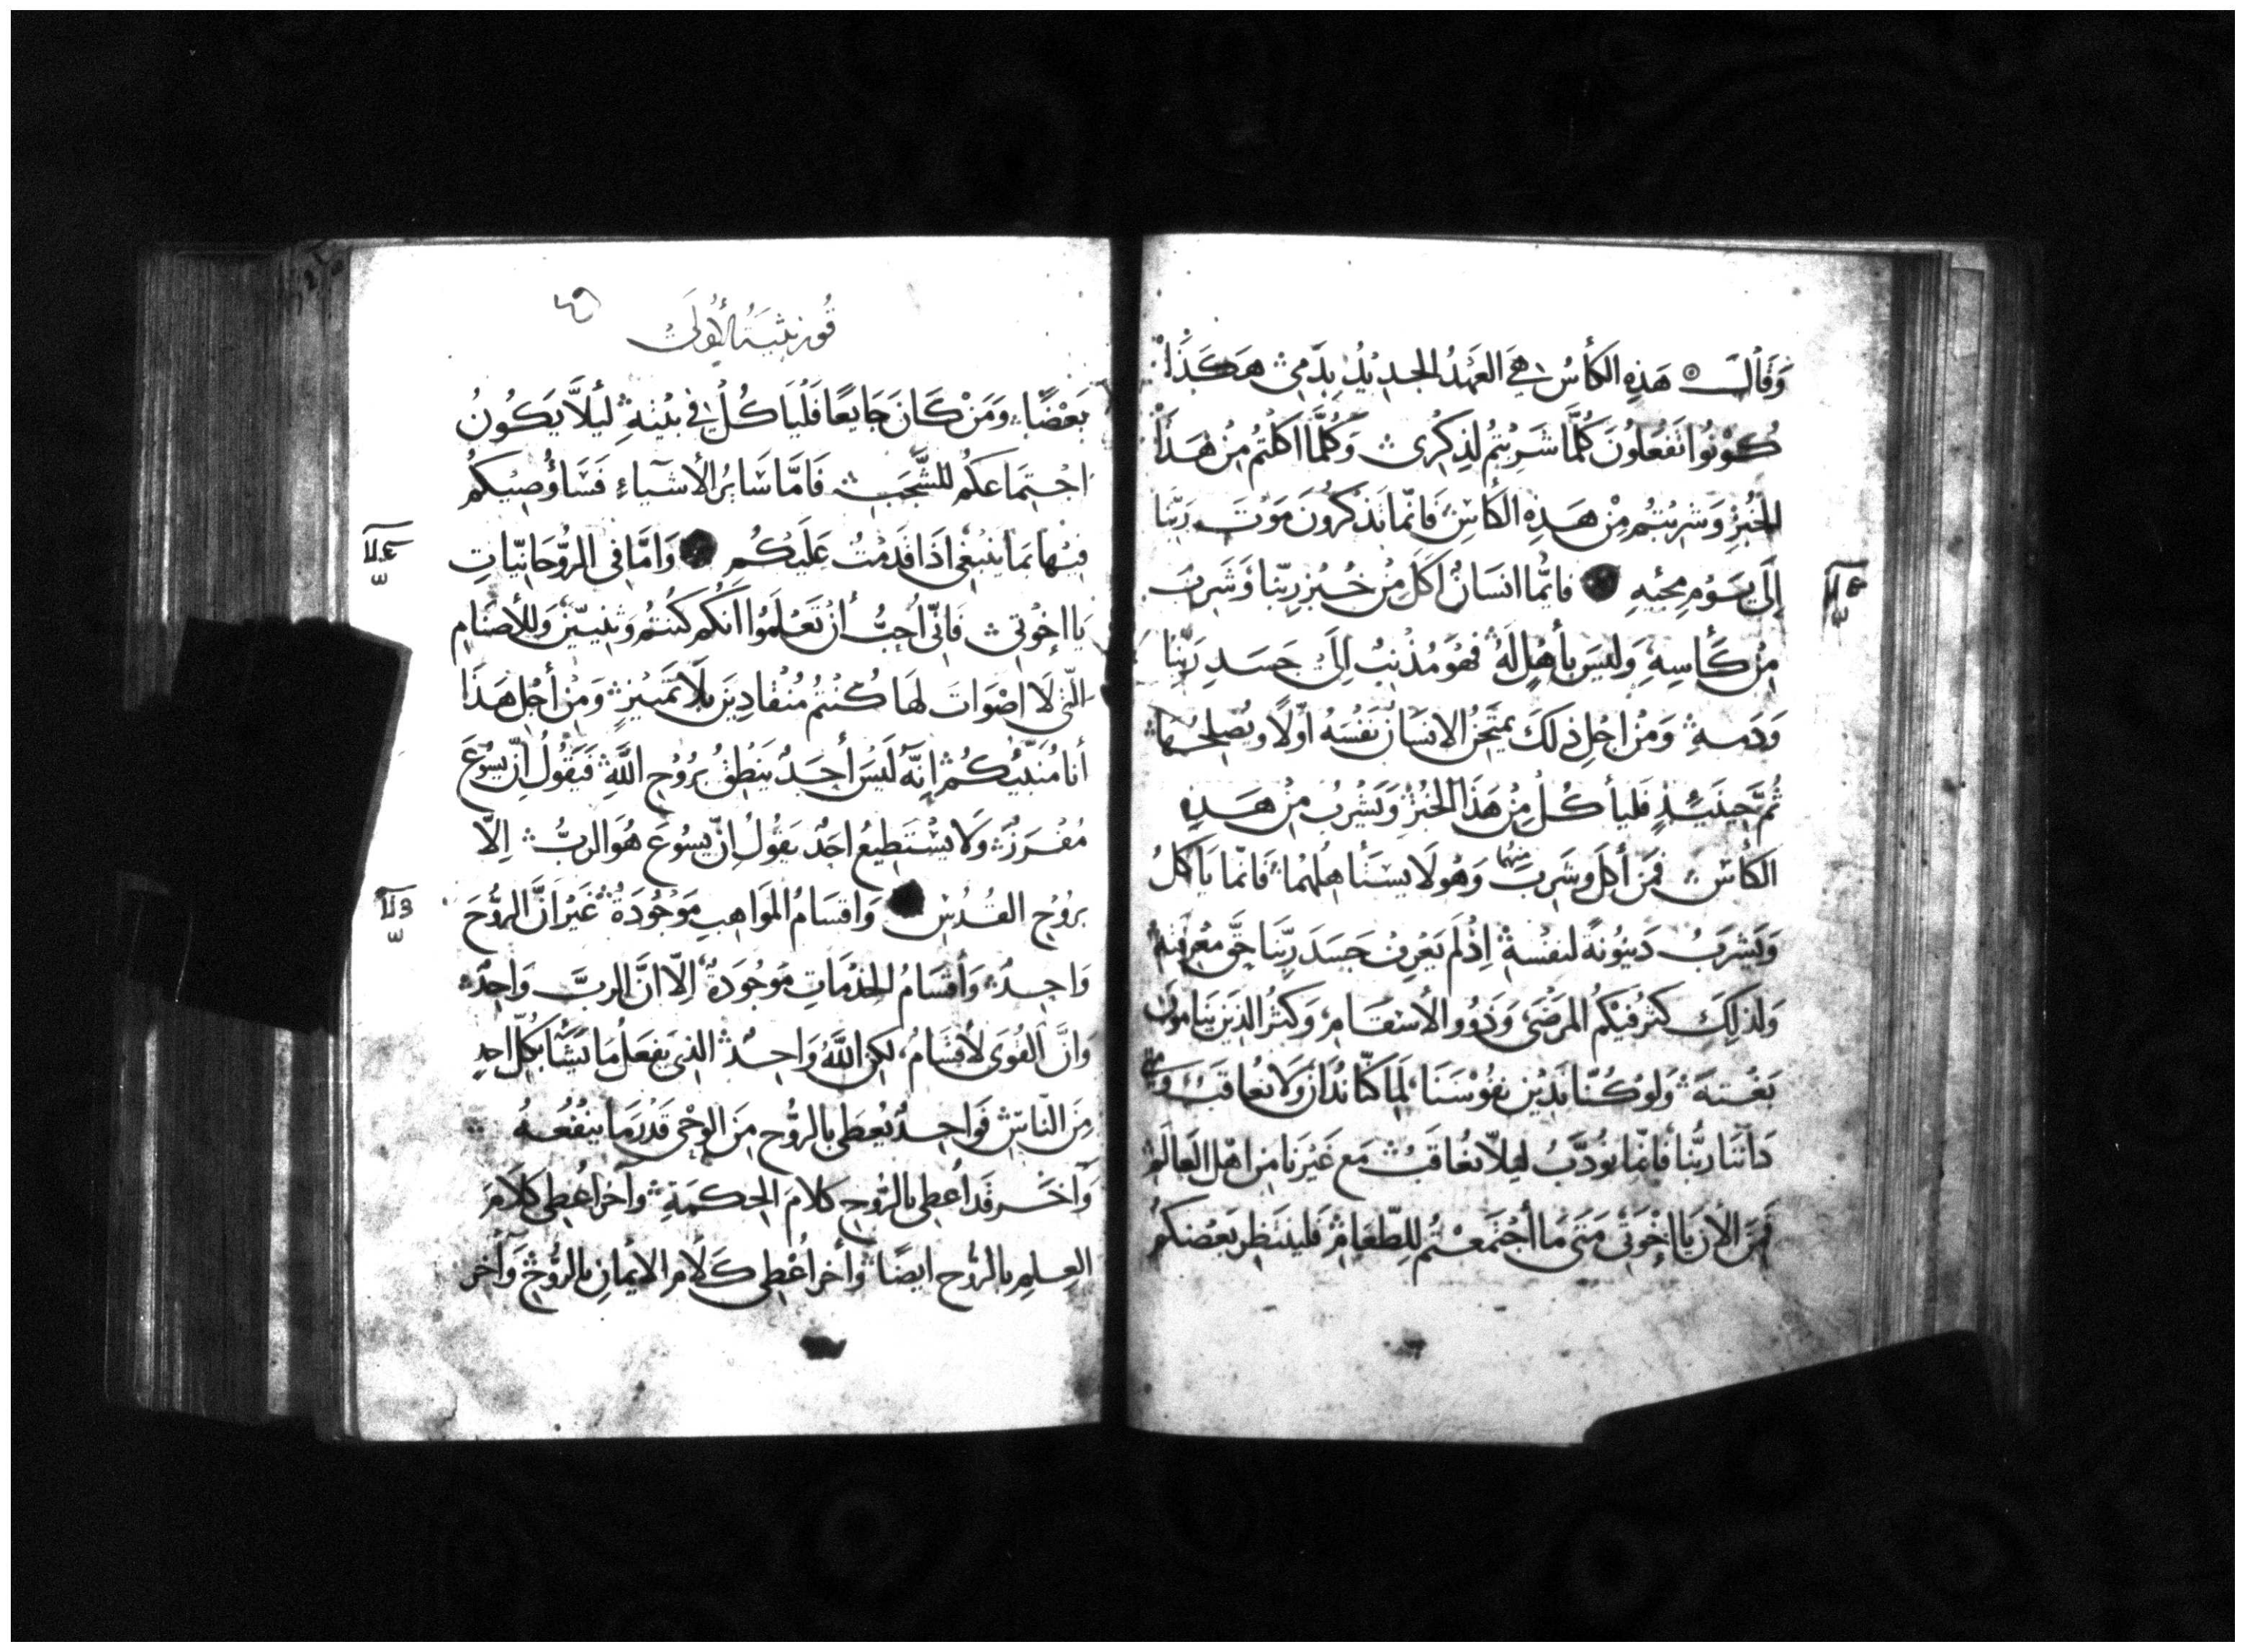 وَقَالَ ۞ هَذِهِ الكَأسُ هِيَ العَهْدُ الجَدِيْدُ بِدَمِي هَكَذَا
كُوْنُوا تَفعَلُونَ كُلَّمَا شَرِبْتُم لِذِكْرِي وَكُلَّمَا اكَلْتُم مِنْ هَذَا
الخُبْزِ وَشَرِبْتُم مِنْ هَذِهِ الكَاسِ فَانّمَا تَذكُرُونَ مَوْتَ رَبِّنَا
إِلَى يَوْمِ مَجِيْئِهِ فايُّمَا انسَانٍ اَكَلَ مِنْ خُبْزِ رَبِّنا وَشَرِبَ
مِنْ كَأسِهِ وَليسَ بأهْلٍ لَهُ فَهُوَ مُذْنِبٌ اِلَى جَسَدِ رَبِّنَا
وَدَمِهِ وَمِنْ اجْلِ ذلَكَ يمتَحِنُ الانسَانُ نَفْسَهُ اوّلًا ويُصلِحُهَا
ثُمَّ حِينَئِذٍ فَليأكُلْ مِنْ هَذَا الخُبْزِ وَيَشْرِبُ مِنْ هَذِهِ
الكَاسِ فَمَن أكَلَ وشَرِبَ مِنهُما وَهُو لَا يسْتَأهِلُهُمَا فَانّما يَأكُلُ
وَيَشرَبُ دَينُونَةً لنَفْسِهِ اِذْ لَم يَعْرِف جَسَدَ رَبِّنَا حَقَّ مَعْرِفَتِهِ
وَلذَلِكَ كَثُرَ فيْكُم المَرضَى وَذَوُو الأسْقَامِ وَكَثُرَ الذِينَ يَنَامُونَ
بَغْتَةً وَلَوْ كُنّا نَدِيْنُ نفُوْسَنَا لَمَا كُنّا نُدَانُ وَلَا نُعَاقَبُ وَمتَى
دَانَنَا رَبُّنَا فَانّمَا نُؤدَّبُ لِيلَّا نُعَاقَبُ مَع غَيْرِنَا مِن اهْلِ العَالَمِ
فَمِنَ الأن يَا إِخْوَتِي مَتَى مَا أجْتَمَعْتُم لِلطّعَامِ فَلينتَظِر بَعْضُكُمْ
قُورنثيَةُ الأُولَى
بَعْضًا وَمَنْ كَانَ جَايعًا فَلْيَاكُلْ فِي بَيْتِهِ لِيَلَّا يَكُونُ
اجْتِمَاعَكُم للشَّجَبِ فَامَّا سَايرُ الأشيَاءِ فَسَأوُصِيْكُمْ
فيْهَا بمَا يَنبَغِي اذَا قَدِمْتُ عَلَيْكُم وَامَّا فِي الرُّوْحَانيّاتِ
يَا إخْوَتِي فَانِّي أحِبُّ أنْ تَعْلَمُوا أنّكُم كُنتُم وَثنيّينَ وَللأصْنَامِ
الّتي لَا اصْوَاتَ لهَا كُنْتُم مُنْقَادِينَ بلَا تَميِيزٍ وَمِنْ أجْلِ هَذَا
أنَا مُنَبِّيُكُم إنّهُ لَيْسَ أحَدٌ يَنْطِقُ بِرُوْحِ اللَّهِ فَيَقُولُ انّ يَسُوْعَ
مُفْرَزٌ وَلَا يَسْتَطيعُ احَدٌ يَقُولُ انّ يسُوْعَ هُوَ الرَبُّ اِلَّا
بِرُوْحِ القُدُسِ وَاقسَامُ المَوَاهِبِ مَوجُودَةٌ غَيْرَ انَّ الرُّوْحَ
وَاحِدٌ وَأقسَامُ الخِدمَاتِ مَوجُودَةٌ اِلّا انَّ الربَّ وَاحِدٌ
وَانَّ القُوَى لَأقسَامٌ لكِن اللّهُ وَاحِدٌ الذِي يَفعَلُ مَا يَشَا بكُلِّ احدٍ
مِنَ النّاسِ فَوَاحِدٌ يُعطَى بالرُّوحِ مِنَ الوَحْي قَدْرَ مَا يَنْفَعُهُ
وَآخَر قَد أُعطِي بالرُّوحِ كَلامَ الحِكمَةِ وآخر أُعطِي كَلَامَ
العِلمِ بالرُّوحِ ايضًا وأخر أُعْطِي كَلَامَ الايمَانِ بالرُّوْحِ وَآخر